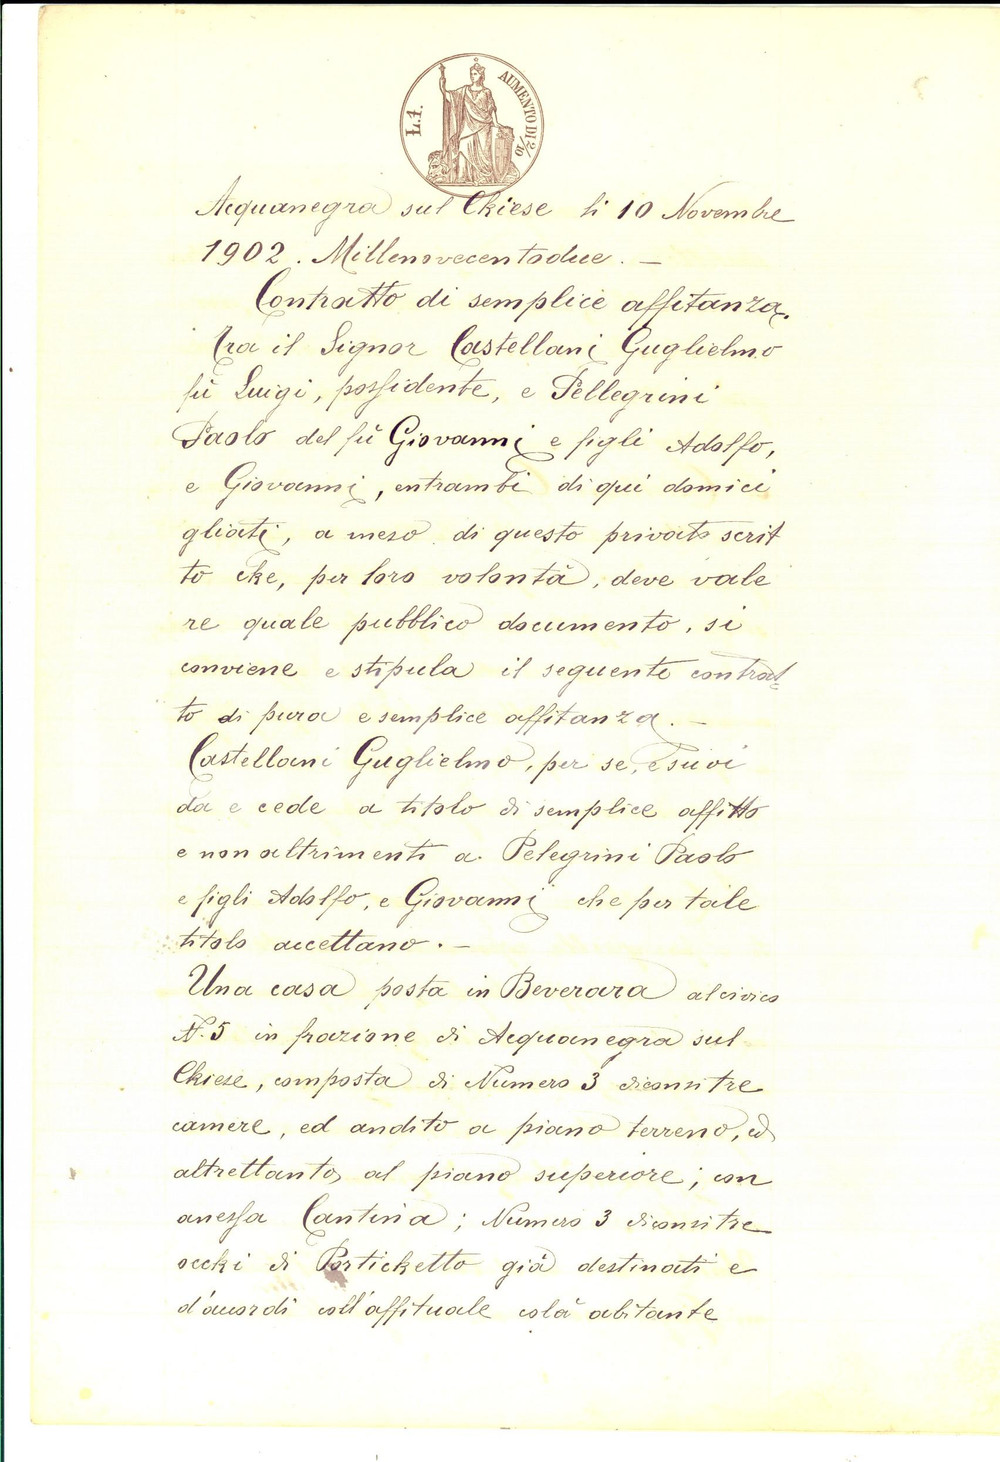 L. 1.
AUMENTO DI 2/10
Acquanegra sul Chiese li 10 Novembre
1902. Millenovecentodue. —
Contratto di semplice affitanza.
Tra il Signor Castellani Guglielmo
fù Luigi, possidente, e Pellegrini
Paolo del fù Giovanni e figli Adolfo,
e Giovanni, entrambi di qui domici
gliati, a meso di questo privato scrit
to che, per loro volontà, deve vale
re quale pubblico documento, si
conviene e stipula il seguente contrat=
to di pura e semplice affitanza. —
Castellani Guglielmo, per se, e suoi
da e cede a titolo di semplice affitto
e non altrimenti a Pelegrini Paolo
e figli Adolfo, e Giovanni che per tale
titolo accettano. —
Una casa posta in Beverara al civico
N. 5 in frazione di Acquanegra sul
Chiese, composta di Numero 3 diconsi tre
camere, ed andito a piano terreno, ed
altrettanto al piano superiore; con
anessa Cantina; Numero 3 diconsi tre
occhi di Portichetto già destinati e
d'acordi coll'affituale colà abitante